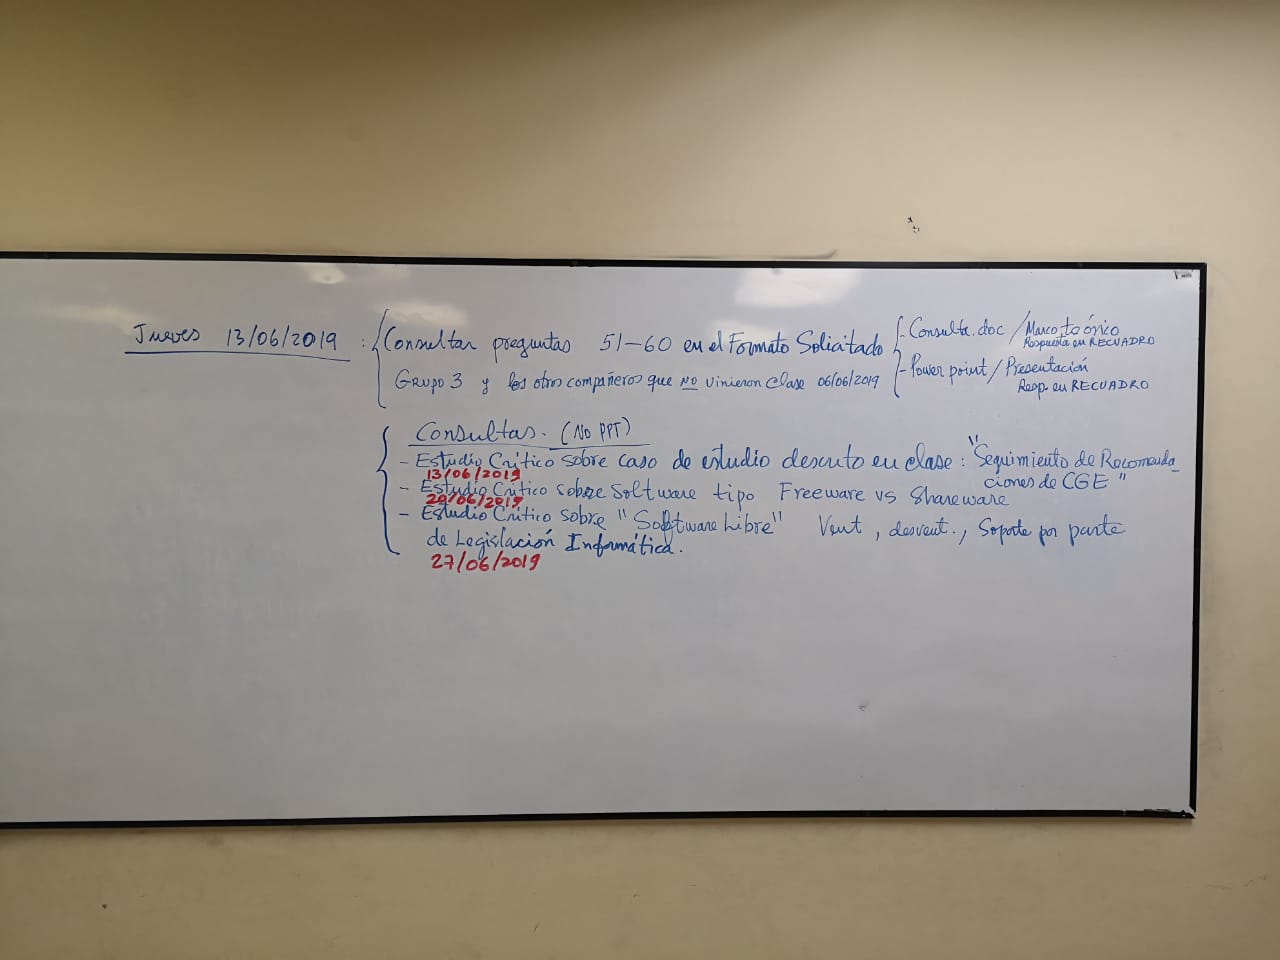 Jueves 13/06/2019 : Consultar preguntas 51-60 en el Formato Solicitado - Consulta.doc / Marco teórico
Respuesta en RECUADRO
Grupo 3 y los otros compañeros que NO vinieron clase 06/06/2019 - Power point / Presentación
Resp. en RECUADRO
Consultas. (No PPT)
- Estudio Crítico sobre caso de estudio descrito en clase: "Seguimiento de Recomenda
ciones de CGE"
13/06/2019
- Estudio Crítico sobre Software tipo Freeware vs Shareware
20/06/2019
- Estudio Crítico sobre "Software Libre" Vent, desvent., Soporte por parte
de Legislación Informática.
27/06/2019